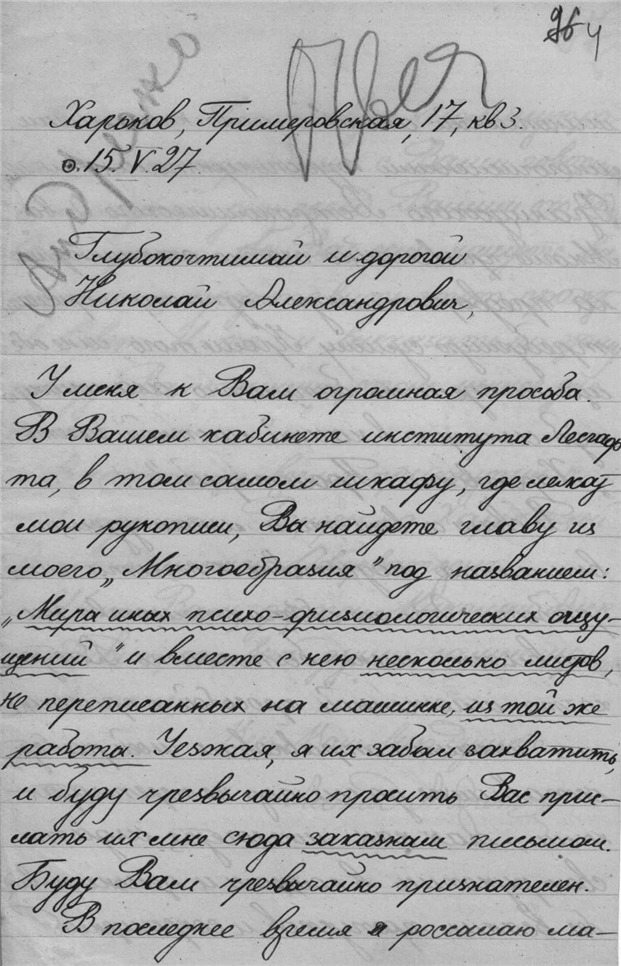 96 ч
Харьков, Примеровская, 17, кв 3.
15. V. 27.
Глубокочтимый и дорогой
Николай Александрович,
У меня к Вам огромная просьба.
В Вашем кабинете института Лесгаф
та, в том самом шкафу, где лежат
мои рукописи, Вы найдете главу из
моего „Многообразия" под названием:
„Мира иных психо-физиологических ощу-
щений" и вместе с нею несколько листов,
не переписанных на машинке, из той же
работы. Уезжая, я их забыл захватить,
и буду чрезвычайно просить Вас прис-
лать их мне сюда заказным письмом.
Буду Вам чрезвычайно признателен.
В последнее время я россылаю ма-